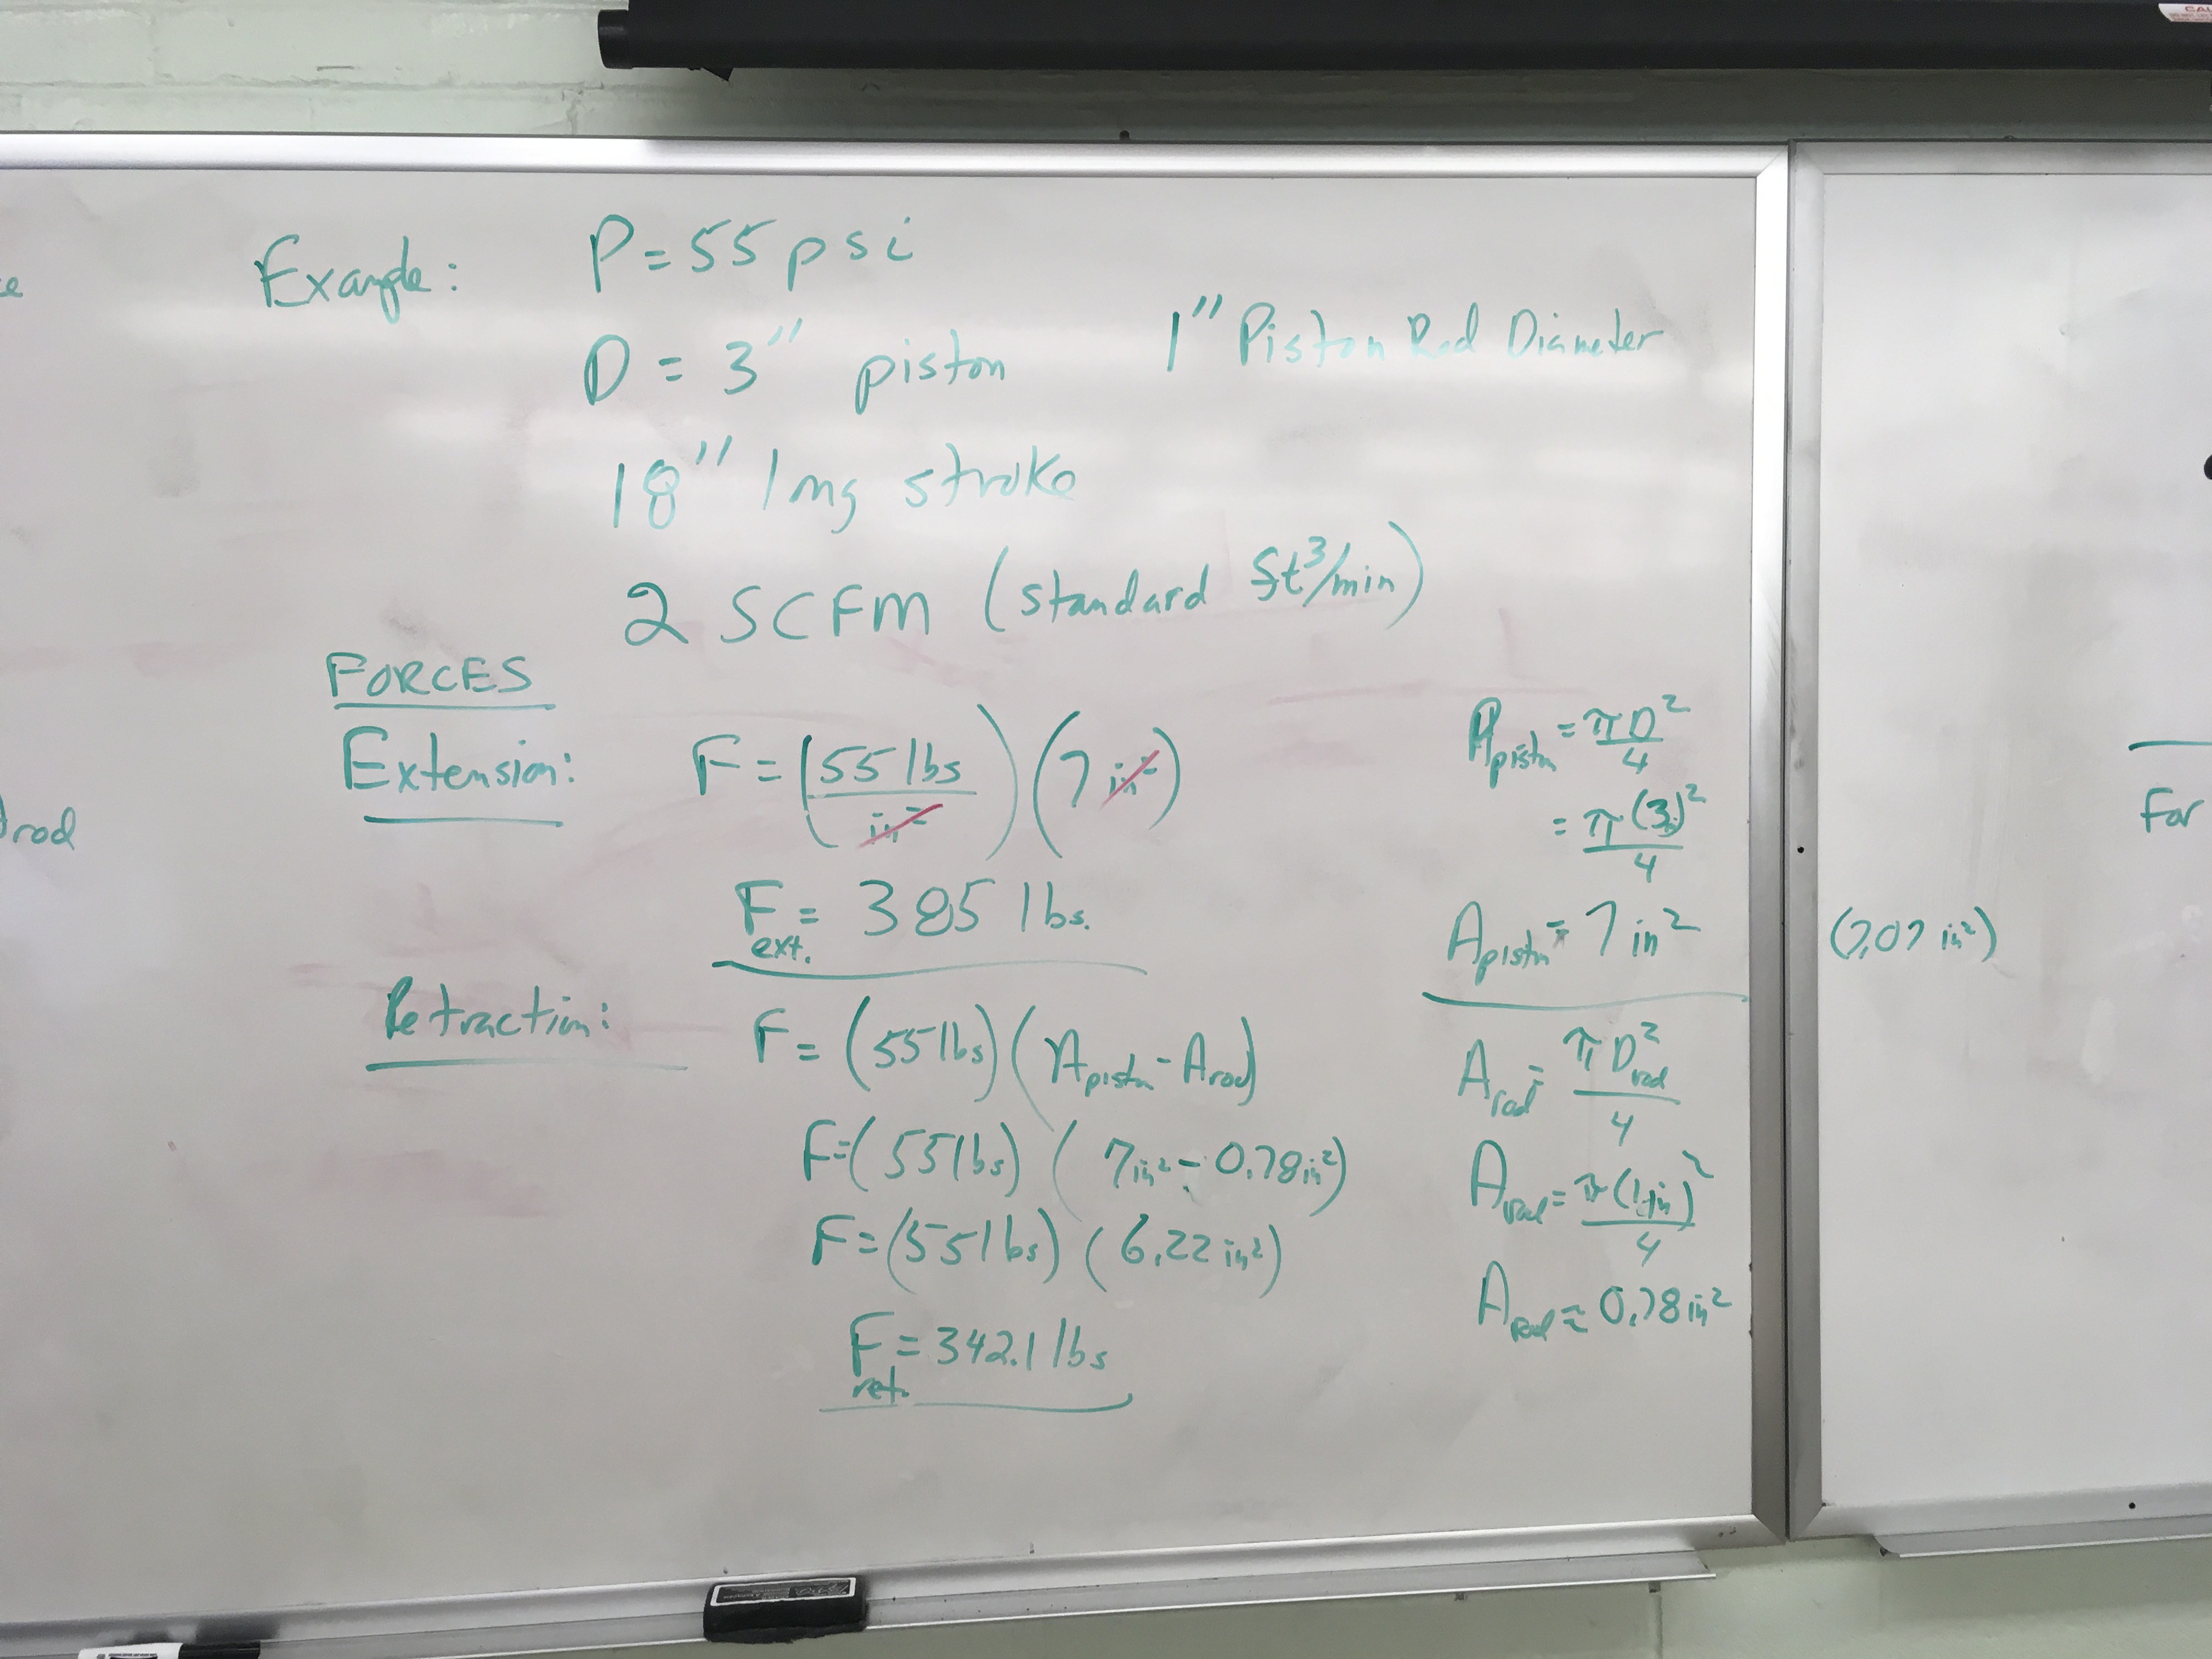 Example: P = 55 psi
D = 3" piston 1" Piston Rod Diameter
18" long stroke
2 SCFM (standard ft³/min)
FORCES
Extension: F = (55 lbs / in²) (7 in²)
F ext. = 385 lbs.
Retraction: F = (55 lbs) (A piston - A rod)
F = (55 lbs) (7 in² - 0.78 in²)
F = (55 lbs) (6.22 in²)
F ret. = 342.1 lbs
A piston = πD² / 4
= π (3)² / 4
A piston = 7 in² (7.07 in²)
A rod = π D rod² / 4
A rod = π (1 in)² / 4
A rod ≈ 0.78 in²
rod
For